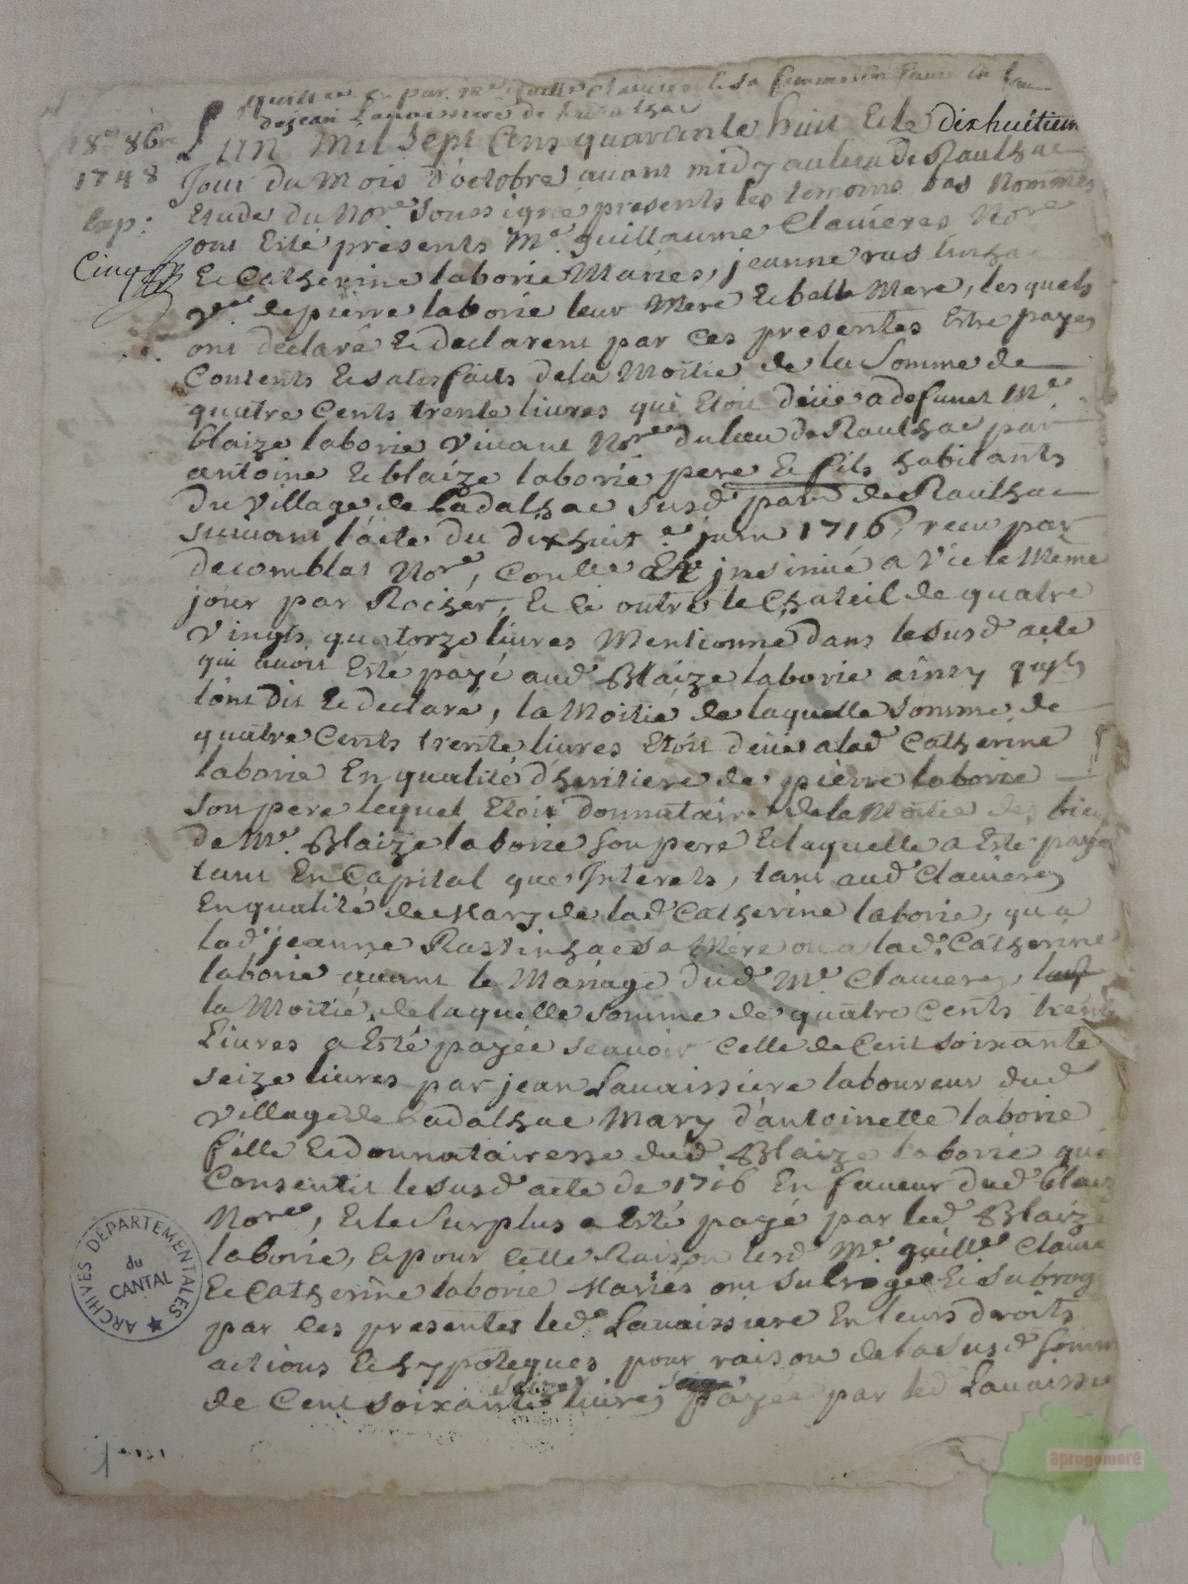 quittance par Me Guille Clavieres et sa femme en faveur
de jean Lavaissiere de Ladalhac
18e 8bre
1748
Exp:
Cinq
Lan Mil Sept Cens quarante huit Et le dixhuitiem
Jour du Mois d'octobre avant midy au lieu de Raulhac
Etude du Nore Soussigné presents les temoins bas Nommés
ont Esté présents Me guillaume Clavieres Nore
Et Catherine laborie Maries, jeanne ras
Ve de pierre laborie leur Mere & belle Mere, lesquels
ont declaré & declarent par ces presentes Estre payes
Contents & satisfaits de la Moitie de la Somme de
quatre Cents trente livres qui Etoit deüe a defunct Me
blaize laborie vivant Nore du lieu de Raulhac par
antoine & blaize laborie pere & fils habitants
du village de Ladalhac susd par de Raulhac
suivant l'acte du dixhuit e juin 1716, receu par
decomblat Nore, Conlle & insinué a Vic le Meme
jour par Rocher, & ce outre le Chateil de quatre
Vingts quatorze livres Mentionné dans le susd acte
qui avoit Esté payé aud Blaize laborie ainsy quils
lont dit & declaré, la Moitie de laquelle Somme de
quatre Cents trente livres Etoit deüe a lad Catherine
laborie En qualité d'heritiere de pierre laborie
Son pere lequel Etoit donnataire de la Moitie des biens
de Me. Blaize laborie Son pere & laquelle a Esté payée
tant En Capital que Interets, tant aud Clavieres
En qualité de Mary de lad Catherine laborie, qu'a
lad jeanne Rastinhac sa Mere ou a lad. Catherine
laborie avant le Mariage dud Me Clavieres,
la Moitié de laquelle Somme de quatre Cents trente
Livres a Esté payée scavoir Celle de Cent soixante
seize livres par jean Lavaissiere laboureur dud
Village de Ladalhac Mary d'antoinette laborie
fille & donnatairesse dud Blaize laborie qui
Consentit le susd acte de 1716 En faveur dud blaize
Nore, & le Surplus a Esté payé par led Blaize
laborie, & pour Cette Raison lesd Me guille Clavie
& Catherine laborie Maries ont subrogé & subrog
par les presentes led Lavaissiere En leurs droits
actions & hypoteques pour raison de la susd somme
de Cent soixante seize livres payée par led Lavaissie
ARCHIVES DÉPARTEMENTALES
du
CANTAL
aprogemere